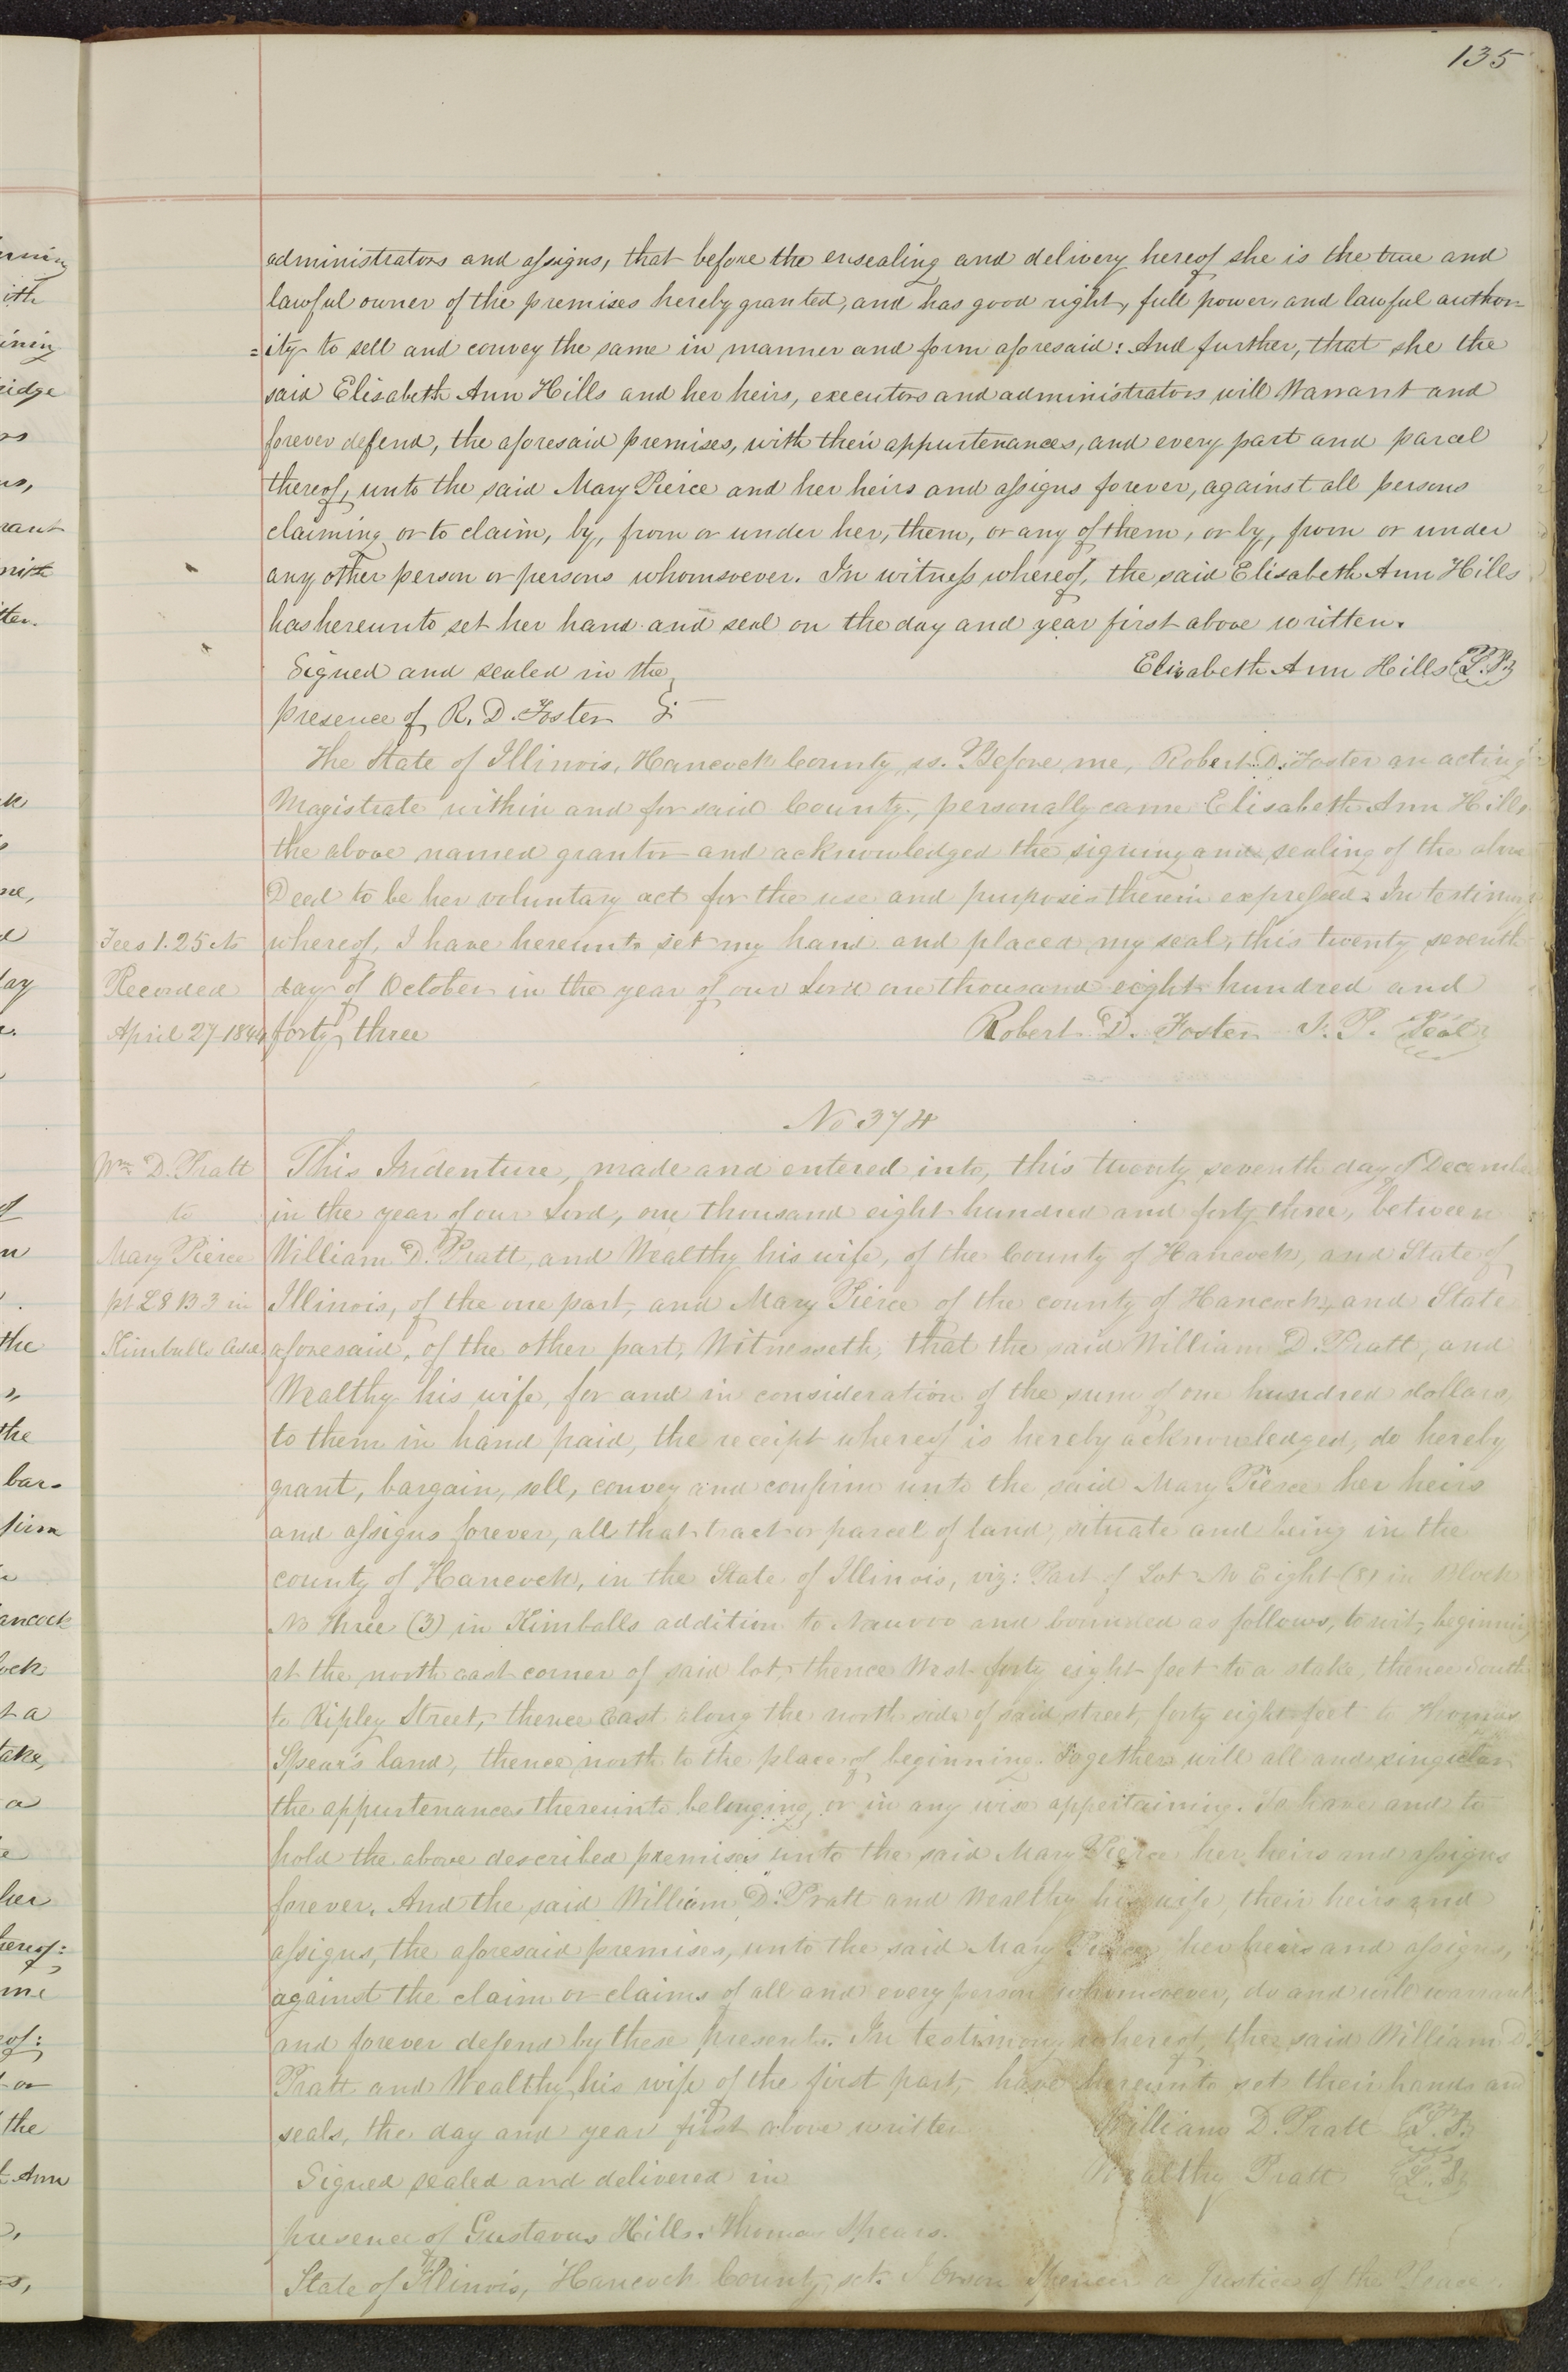 135
administrators and assigns, that before the ensealing and delivery hereof she is the true and
lawful owner of the premises hereby granted, and has good right, full power, and lawful author=
=ity to sell and convey the same in manner and form aforesaid: And further, that she the
said Elisabeth Ann Hills and her heirs, executors and administrators will Warrant and
forever defend, the aforesaid premises, with their appurtenances, and every part and parcel
thereof, unto the said Mary Pierce and her heirs and assigns forever, against all persons
claiming or to claim, by, from or under her, them, or any of them, or by, from or under
any other person or persons whomsoever. In witness whereof, the said Elisabeth Ann Hills
has hereunto set her hand and seal on the day and year first above written.
Signed and sealed in the Elisabeth Ann Hills L.S.
presence of R. D. Foster
The State of Illinois, Hancock County, ss. Before me, Robert D. Foster an acting
Magistrate within and for said County, personally came Elisabeth Ann Hills
the above named grantor and acknowledged the signing and sealing of the above
Deed to be her voluntary act for the use and purposes therein expressed. In testimony
Fees 1.25 cts whereof, I have hereunto set my hand and placed my seal, this twenty seventh
Recorded day of October in the year of our Lord one thousand eight hundred and
April 27 1844 forty three Robert D. Foster J. P. Seal
No 374
Wm D. Pratt This Indenture, made and entered into, this twenty seventh day of December
to in the year of our Lord, one thousand eight hundred and forty three, between
Mary Pierce William D. Pratt, and Wealthy his wife, of the County of Hancock, and State of
pt 28 B3 in Illinois, of the one part, and Mary Pierce of the county of Hancock, and State
Kimballs Add aforesaid, of the other part, Witnesseth, that the said William D. Pratt, and
Wealthy his wife, for and in consideration of the sum of one hundred dollars,
to them in hand paid, the receipt whereof is hereby acknowledged, do hereby
grant, bargain, sell, convey and confirm unto the said Mary Pierce her heirs
and assigns forever, all that tract or parcel of land, situate and being in the
county of Hancock, in the State of Illinois, viz: Part of Lot No Eight (8) in Block
No three (3) in Kimballs addition to Nauvoo and bounded as follows, to wit, beginning
at the north east corner of said lot, thence West forty eight feet to a stake, thence South
to Ripley Street, thence East along the north side of said street, forty eight feet to Thomas
Spear's land, thence north to the place of beginning. Together will all and singular
the appurtenances thereunto belonging, or in any wise appertaining. To have and to
hold the above described premises unto the said Mary Pierce her heirs and assigns
forever. And the said William D. Pratt and Wealthy his wife, their heirs and
assigns, the aforesaid premises, unto the said Mary Pierce, her heirs and assigns,
against the claim or claims of all and every person whomsoever, do and will warrant
and forever defend by these presents. In testimony whereof, the said William D.
Pratt and Wealthy his wife of the first part, have hereunto set their hands and
seals, the day and year first above written William D. Pratt L.S.
Signed sealed and delivered in Wealthy Pratt L.S.
presence of Gustavus Hills. Thomas Spears.
State of Illinois, Hancock County, sct. I Orson Spencer a Justice of the Peace